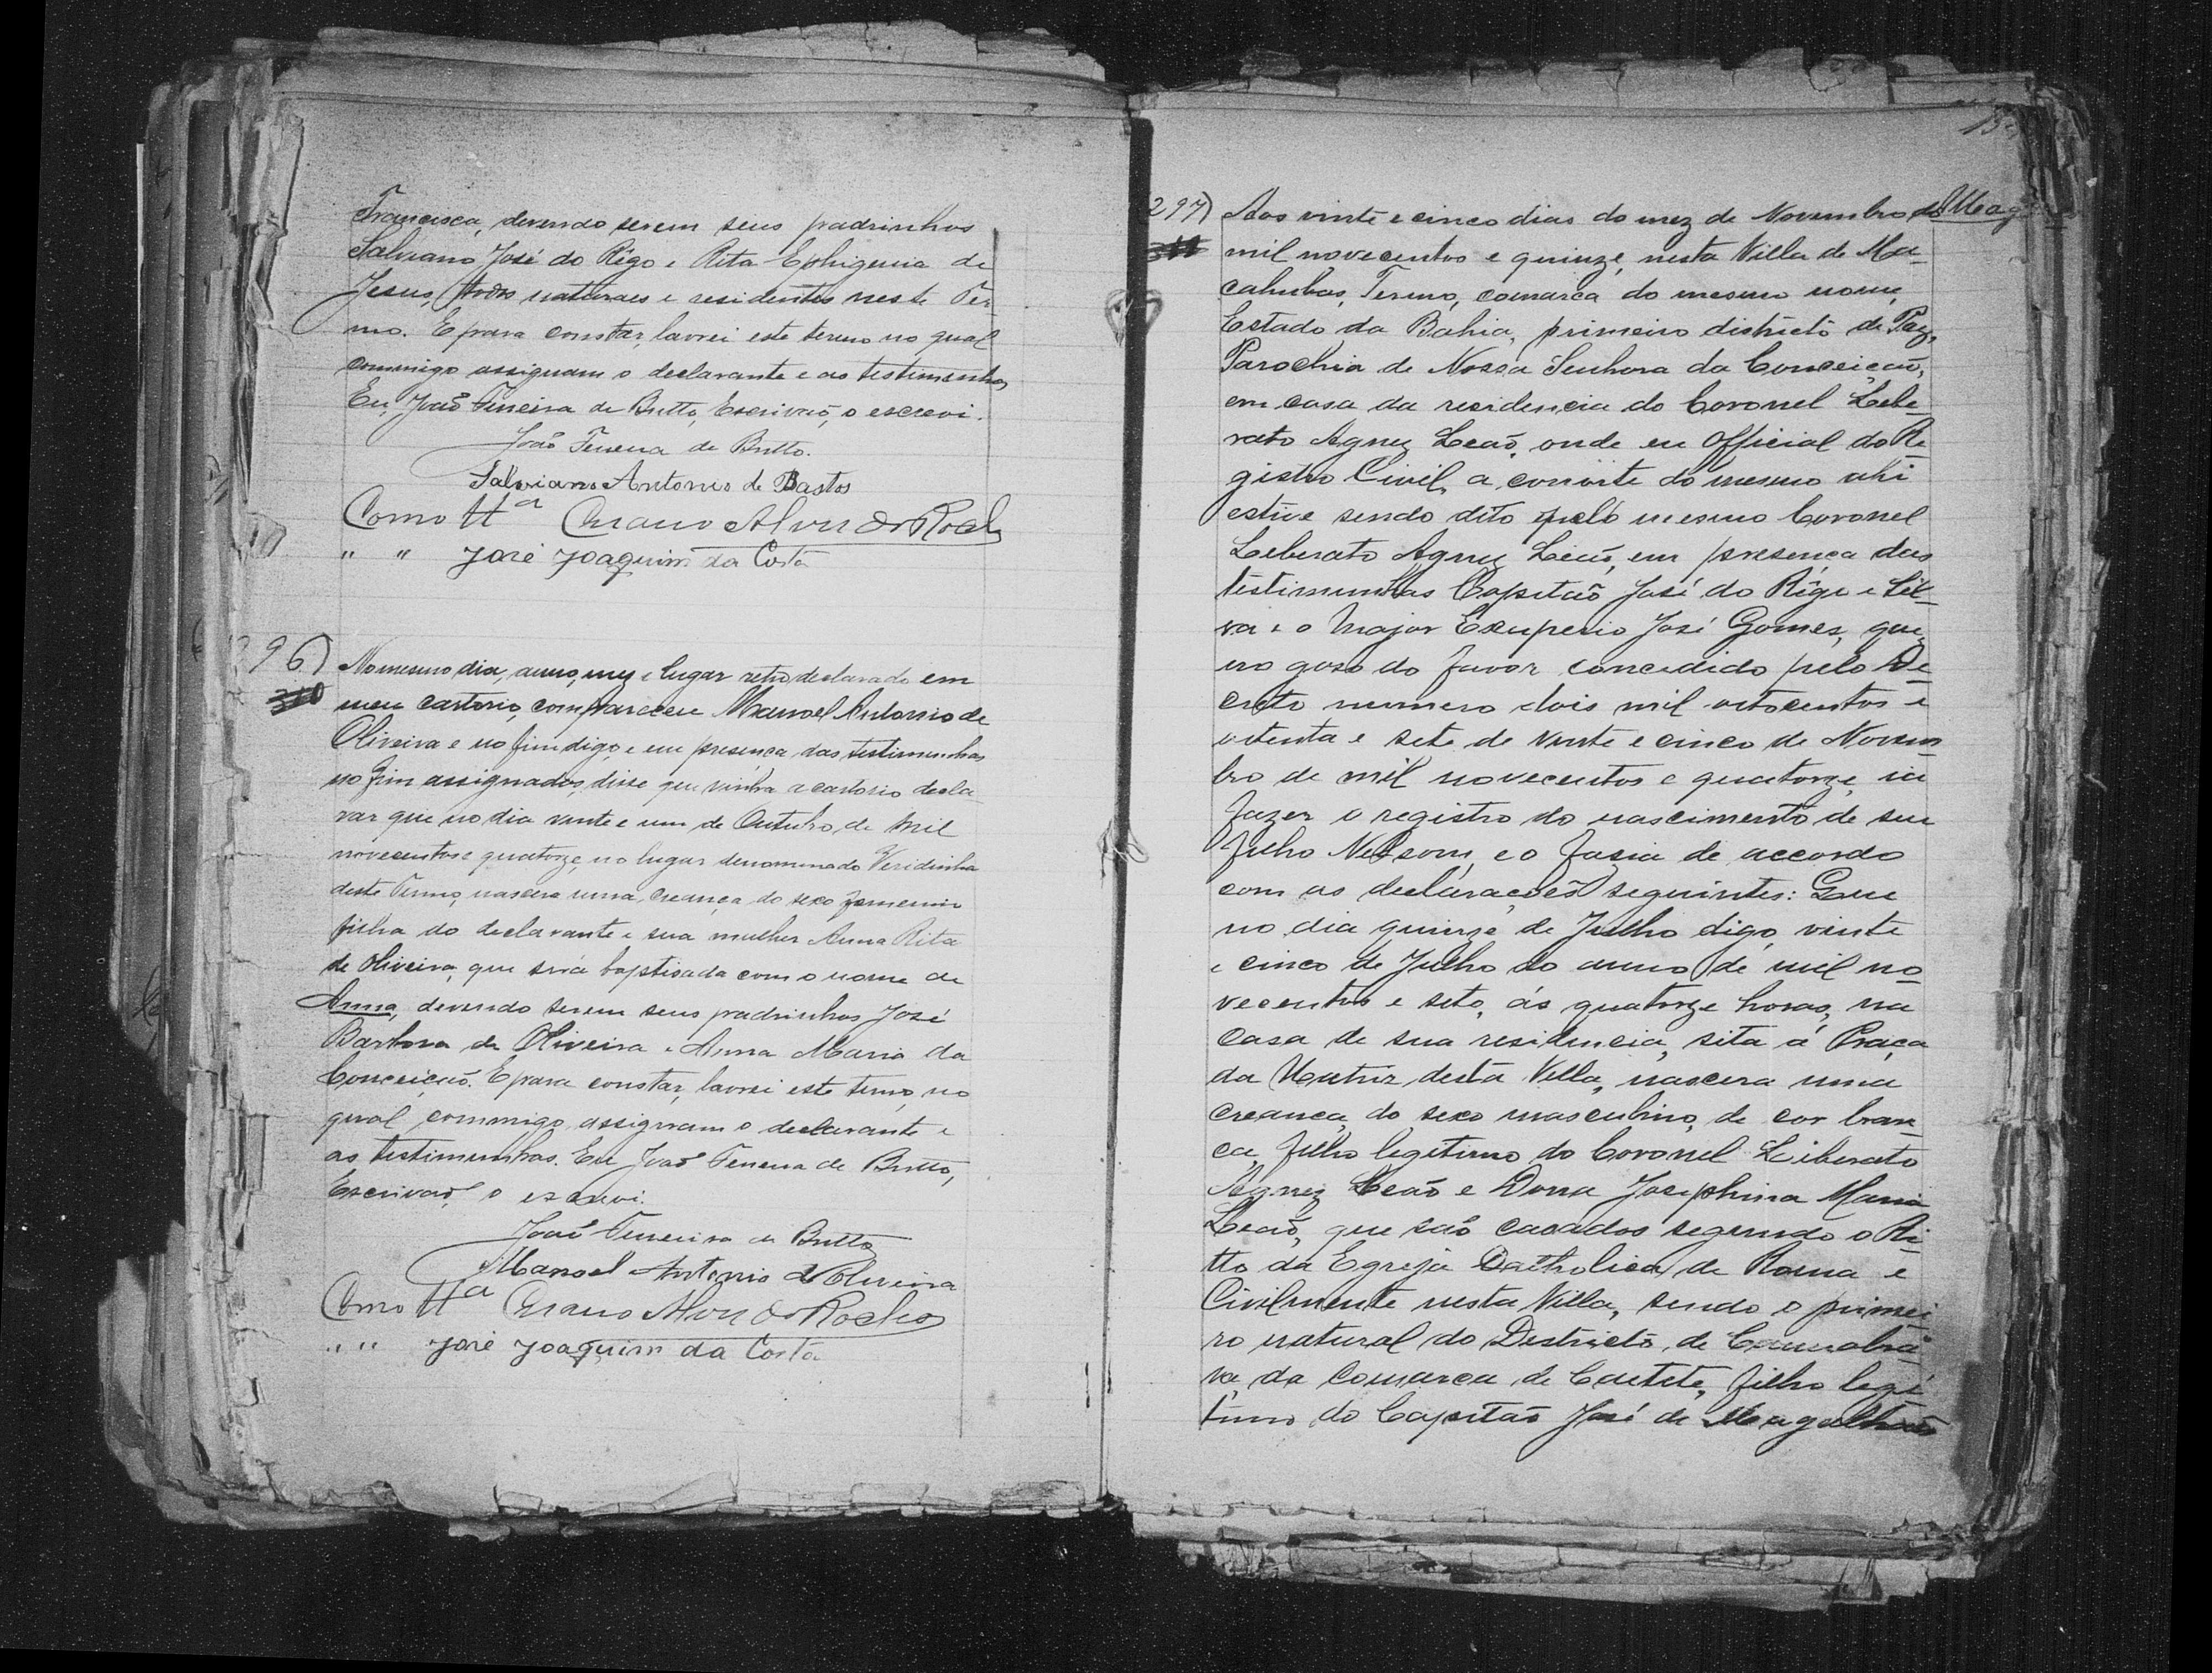 Francisca, devendo serem seus padrinhos
Salviano José do Rêgo e Rita Ephigenia de
Jesus, todos naturaes e residentes neste Ter
mo. E para constar, lavrei este termo no qual
commigo assignam o declarante e as testimunhas,
Eu, João Ferreira de Britto, Escrivaõ, o escrevi.
João Ferreira de Britto.
Salviano Antonio de Bastos
Como ttª Alves da Rocha
" " José Joaquim da Costa
296)
310
No mesmo dia, anno, mez e lugar retro declarado em
meu cartorio, compareceu Manoel Antonio de
Oliveira e no fim digo, e em presença das testimunhas
no fim assignados, disse que vinha a cartorio decla
rar que no dia vinte e um de Outubro, de mil
novecentos e quatorze, no lugar denominado Veridinha
deste Termo, nascera uma creança do sexo femenin
filha do declarante e sua mulher Anna Rita
de Oliveira, que será baptisada com o nome de
Anna, devendo serem seus padrinhos José
Barbosa de Oliveira e Anna Maria da
Conceiçaõ. E para constar, lavrei este termo, no
qual, commigo, assignam o declarante e
as testimunhas. Eu, Joaõ Ferreira de Britto,
Escrivaõ, o escrevi.
Joaõ Ferreira de Britto
Manoel Antonio de Oliveira
Como ttª Alves da Rocha
" " José Joaquim da Costa
297)
311
Aos vinte e cinco dias do mez de Novembro de
Mag
mil novecentos e quinze, nesta Villa de Ma-
cahubas, Termo, comarca do mesmo nome,
Estado da Bahia, primeiro districto de Paz,
Parochia de Nossa Senhora da Conceiçaõ,
em casa da residencia do Coronel Libe-
rato Agnez Leaõ, onde eu Official do Re
gistro Civil, a convite do mesmo ahi
estive sendo dito pelo mesmo Coronel
Leberato Agnez Leaõ, em presença das
testimunhas Capitaõ José do Rêgo e Sil-
va e o Major Exuperio José Gomes, que,
no goso do favor concedido pelo De
creto numero dois mil oitocentos e
oitenta e sete de vinte e cinco de Novem
bro de mil novecentos e quatorze, ia
fazer o registro do nascimento de seu
filho Nelsom, e o fasia de accordo
com as declaraçoẽs seguintes: Que
no dia quinze de Julho digo, vinte
e cinco de Julho do anno de mil no
vecentos e sete, ás quatorze horas, na
casa de sua residencia, sita á Praça
da Matriz desta Villa, nascera uma
creança, do sexo masculino, de cor bran
ca, filho legitimo do Coronel Liberato
Agnez Leaõ e Dona Josephina Maria
Leaõ, que saõ casados segundo o Ri-
tto da Egreja Catholica de Roma e
Civilmente nesta Villa, sendo o primei
ro natural do Districto, de Cannabra-
va, da Comarca de Caeteté, filho legi-
timo do Capitaõ José de Magalhaẽs